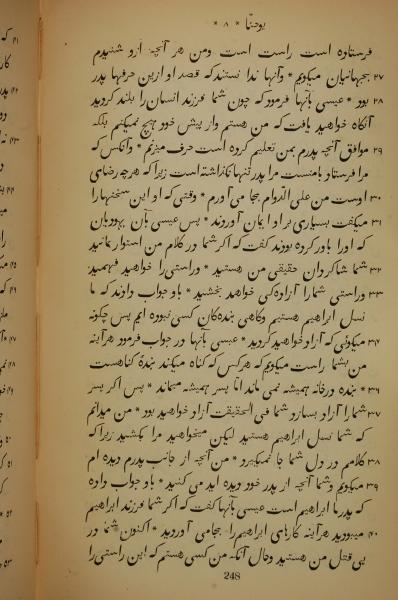 یوحنا * ۸ *
فرستاده است راست است ومن هر آنچه ازو شنیدم
۲۷ بجهانیان میگویم * وآنها ندانستند که قصد او ازین حرفها پدر
۲۸ بود * عیسی بآنها فرمود که چون شما فرزند انسان را بلند کردید
آنگاه خواهید یافت که من هستم واز پیش خود هیچ نمیکنم بلکه
۲۹ موافق آنچه پدرم بمن تعلیم کرده است حرف میزنم * وآنکس که
مرا فرستاد بامنست مرا پدر تنها نگذاشته است زیرا که هرچه رضای
۳۰ اوست من علی الدوام بجا می آورم * وقتی که او این سخنها را
۳۱ میگفت بسیاری بر او ایمان آوردند * پس عیسی بآن یهودیان
که اورا باور کرده بودند گفت که اگر شما در کلام من استوار بمانید
۳۲ شما شاکردان حقیقی من هستید * وراستی را خواهید فهمید
۳۳ وراستی شمارا آزادگی خواهد بخشید * باو جواب دادند که ما
نسل ابراهیم هستیم وگاهی بنده کان کسی نبوده ایم پس چگونه
۳۴ میگوئی که آزاد خواهید گردید * عیسی بآنها در جواب فرمود هرآینه
من بشما راست میگویم که هرکس که گناه میکند بنده گناهست
۳۶ * بنده در خانه همیشه نمی ماند اما پسر همیشه میماند * پس اگر پسر
۳۷ شما را آزاد بسازد شما فی الحقیقت آزاد خواهید بود * من میدانم
که شما نسل ابراهیم هستید لیکن میخواهید مرا بکشید زیرا که
۳۸ کلامم در دل شما جا نمیگیرد * من آنچه از جانب پدرم دیده ام
۳۹ میگویم وشما آنچه از پدر خود دیده اید می کنید * باو جواب داده
که پدر ما ابراهیم است عیسی بآنها گفت که اگر شما فرزند ابراهیم
۴۰ میبودید هرآینه کارهای ابراهیم را بجا می آوردید * اکنون شما در
پی قتل من هستید وحال آنکه من کسی هستم که این راستی را
248